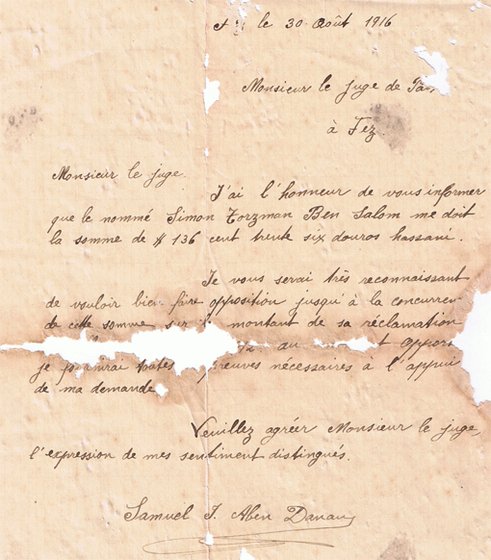 le 30 Août 1916
Monsieur le Juge de
à Fez.
Monsieur le juge
J'ai l'honneur de vous informer
que le nommé Simon Torzman Ben Salom me doit
la somme de $ 136 cent trente six douros hassani.
Je vous serai très reconnaissant
de vouloir bien faire opposition jusqu'à la concurren
de cette somme sur montant de sa réclamation
au
je toutes preuves nécessaires à l'appui
de ma demande
Veuillez agréer Monsieur le juge,
l'expression de mes sentiment distingués.
Samuel J. Aben Danan